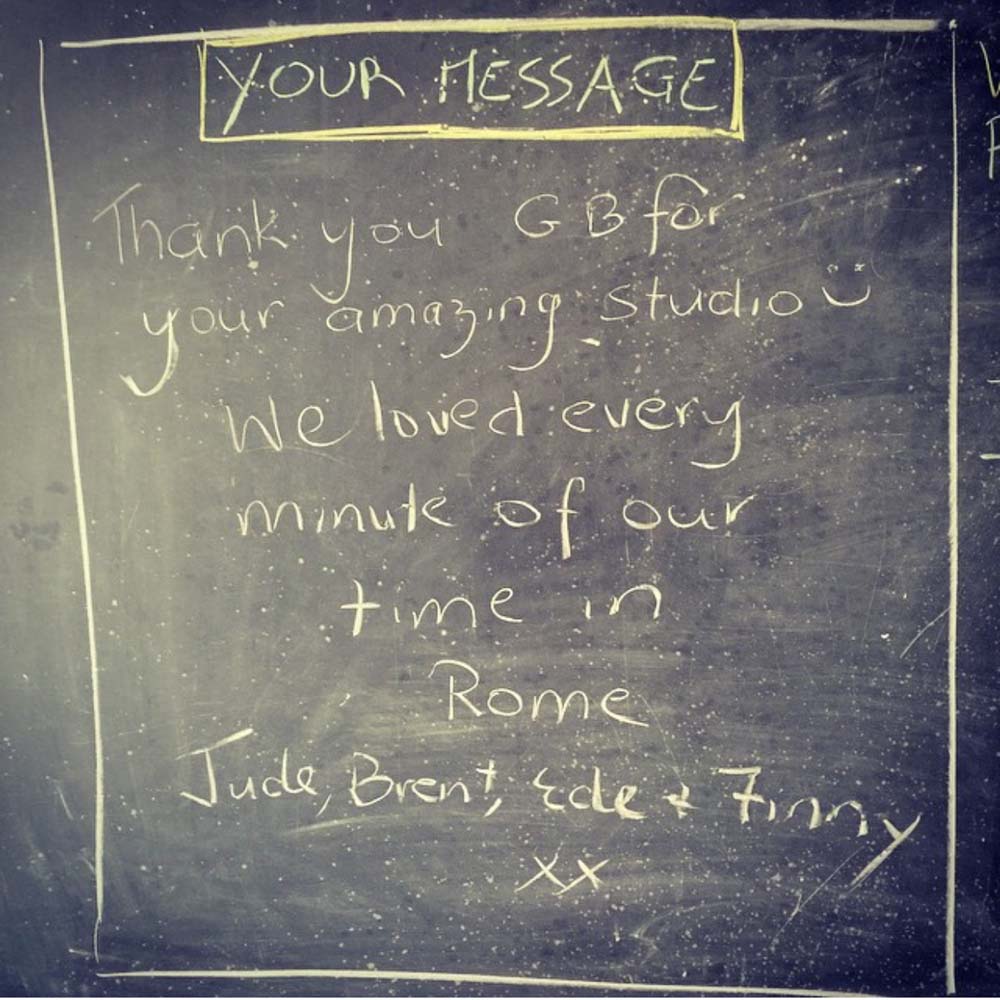 YOUR MESSAGE
Thank you GB for
your amazing studio
We loved every
minute of our
time in
Rome
Jude, Brent, Ede + Finny
xx